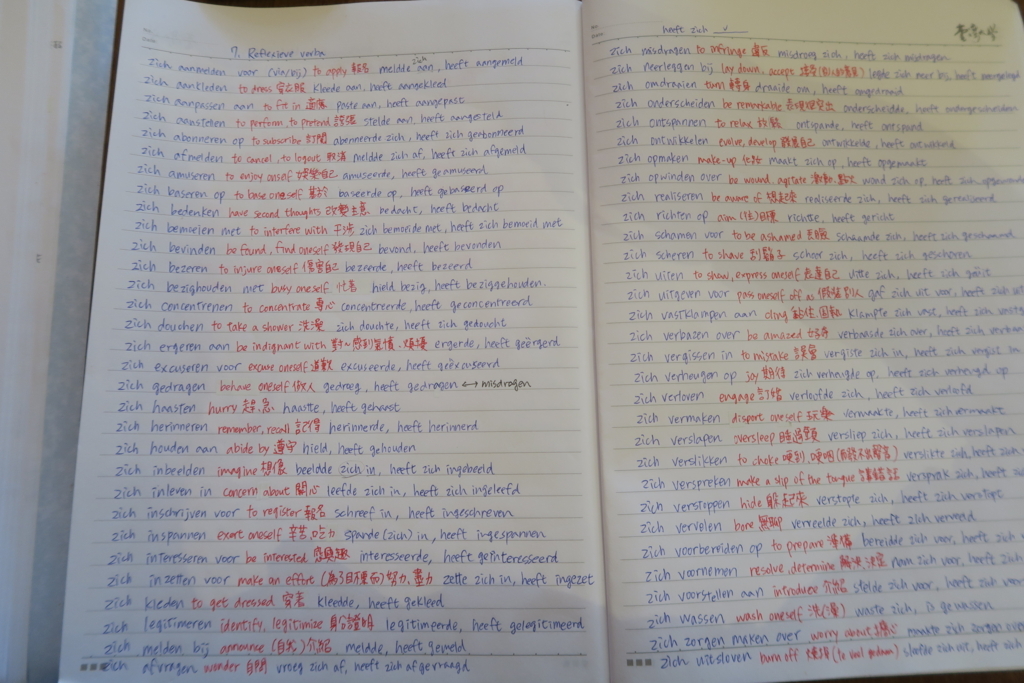 7. Reflexieve verba
zich aanmelden voor (via/bij) to apply 報名 meldde zich aan, heeft aangemeld
zich aankleden to dress 穿衣服 kleede aan, heeft aangekleed
zich aanpassen aan to fit in 適應 paste aan, heeft aangepast
zich aanstellen to perform, to pretend 誇張 stelde aan, heeft aangesteld
zich abonneren op to subscribe 訂閱 abonneerde zich, heeft zich geabonneerd
zich afmelden to cancel, to logout 取消 meldde zich af, heeft zich afgemeld
zich amuseren to enjoy oneself 娛樂自己 amuseerde, heeft geamuseerd
zich baseren op to base oneself 基於 baseerde op, heeft gebaseerd op
zich bedenken have second thoughts 改變主意 bedacht, heeft bedacht
zich bemoeien met to interfere with 干涉 zich bemoeide met, heeft zich bemoeid met
zich bevinden be found, find oneself 發現自己 bevond, heeft bevonden
zich bezeren to injure oneself 傷害自己 bezeerde, heeft bezeerd
zich bezighouden met busy oneself 忙著 hield bezig, heeft beziggehouden.
zich concentreren to concentrate 專心 concentreerde, heeft geconcentreerd
zich douchen to take a shower 洗澡 zich douchte, heeft zich gedoucht
zich ergeren aan be indignant with 對~感到氣憤, 煩擾 ergerde, heeft geërgerd
zich excuseren voor excuse oneself 道歉 excuseerde, heeft geëxcuseerd
zich gedragen behave oneself 做人 gedroeg, heeft gedragen ↔ misdragen
zich haasten hurry 趕, 急 haastte, heeft gehaast
zich herinneren remember, recall 記得 herinnerde, heeft herinnerd
zich houden aan abide by 遵守 hield, heeft gehouden
zich inbeelden imagine 想像 beeldde zich in, heeft zich ingebeeld
zich inleven in concern about 關心 leefde zich in, heeft zich ingeleefd
zich inschrijven voor to register 報名 schreef in, heeft ingeschreven
zich inspannen exert oneself 辛苦, 吃力 spande (zich) in, heeft ingespannen
zich interesseren voor be interested 感興趣 interesseerde, heeft geïnteresseerd
zich inzetten voor make an effort (為了目標而) 努力, 盡力 zette zich in, heeft ingezet
zich kleden to get dressed 穿著 kleedde, heeft gekleed
zich legitimeren identify, legitimize 身份證明 legitimeerde, heeft gelegitimeerd
zich melden bij announce (自我) 介紹 meldde, heeft gemeld
zich afvragen wonder 自問 vroeg zich af, heeft zich afgevraagd
heeft zich v
zich misdragen to infringe 違反 misdroeg zich, heeft zich misdragen
zich neerleggen bij lay down, accept legde zich neer bij, heeft neergelegd
zich omdraaien turn 轉身 draaide om, heeft omgedraaid
zich onderscheiden be remarkable 表現突出 onderscheidde, heeft onderscheiden
zich ontspannen to relax 放鬆 ontspande, heeft ontspand
zich ontwikkelen evolve, develop 發展自己 ontwikkelde, heeft ontwikkeld
zich opmaken make-up 化妝 maakt zich op, heeft opgemaakt
zich opwinden over be wound, agitate 激動 wond zich op, heeft zich
zich realiseren be aware of 想起來 realiseerde zich, heeft zich gerealiseerd
zich richten op aim richtte, heeft gericht
zich schamen voor to be ashamed 丟臉 schaamde zich, heeft zich geschaamd
zich scheren to shave 刮鬍子 scheer zich, heeft zich geschoren
zich uiten to show, express oneself 表達自己 uitte zich, heeft zich geüit
zich uitgeven voor pass oneself off as 假裝別人 gaf zich uit voor, heeft zich
zich vastklampen aan cling 黏住 klampte zich vast, heeft zich
zich verbazen over be amazed 好奇 verbaasde zich over, heeft zich
zich vergissen in to mistake 誤會 vergiste zich in, heeft zich
zich verheugen op joy 期待 verheugde op, heeft zich verheugd op
zich verloven engage 訂婚 verloofde zich, heeft zich verloofd
zich vermaken disport oneself 玩樂 vermaakte, heeft zich vermaakt
zich verslapen oversleep 睡過頭 versliep zich, heeft zich verslapen
zich verslikken to choke 哽到, 哽咽 verslikte zich, heeft zich
zich verspreken make a slip of the tongue 講錯話 versprak zich, heeft
zich verstoppen hide 躲起來 verstopte zich, heeft zich verstopt
zich vervelen bore 無聊 verveelde zich, heeft zich verveeld
zich voorbereiden op to prepare 準備 bereidde zich voor, heeft zich
zich voornemen resolve, determine 解決, 決定 nam zich voor, heeft
zich voorstellen aan introduce 介紹 stelde zich voor, heeft
zich wassen wash oneself 洗(澡) waste zich, is gewassen
zich zorgen maken over worry about 擔心 maakte zich zorgen over
zich uitsloven burn off 燒掉 sloofde zich uit, heeft zich